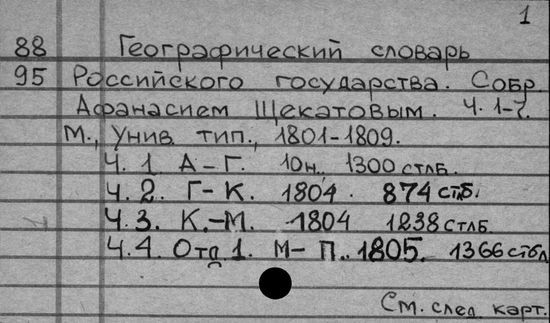 1
88 Географический словарь
95 Российского государства. Собр
Афанасием Щекатовым. Ч. 1-7.
М., Унив. тип., 1801-1809.
Ч. 1 А-Г. 10н., 1300 стлб.
Ч. 2. Г-К. 1804. 874 стлб.
Ч. 3. К.-М. 1804 1238 стлб.
Ч. 4. Отд 1. М-П. 1805. 1366 стбл
См. след. карт.